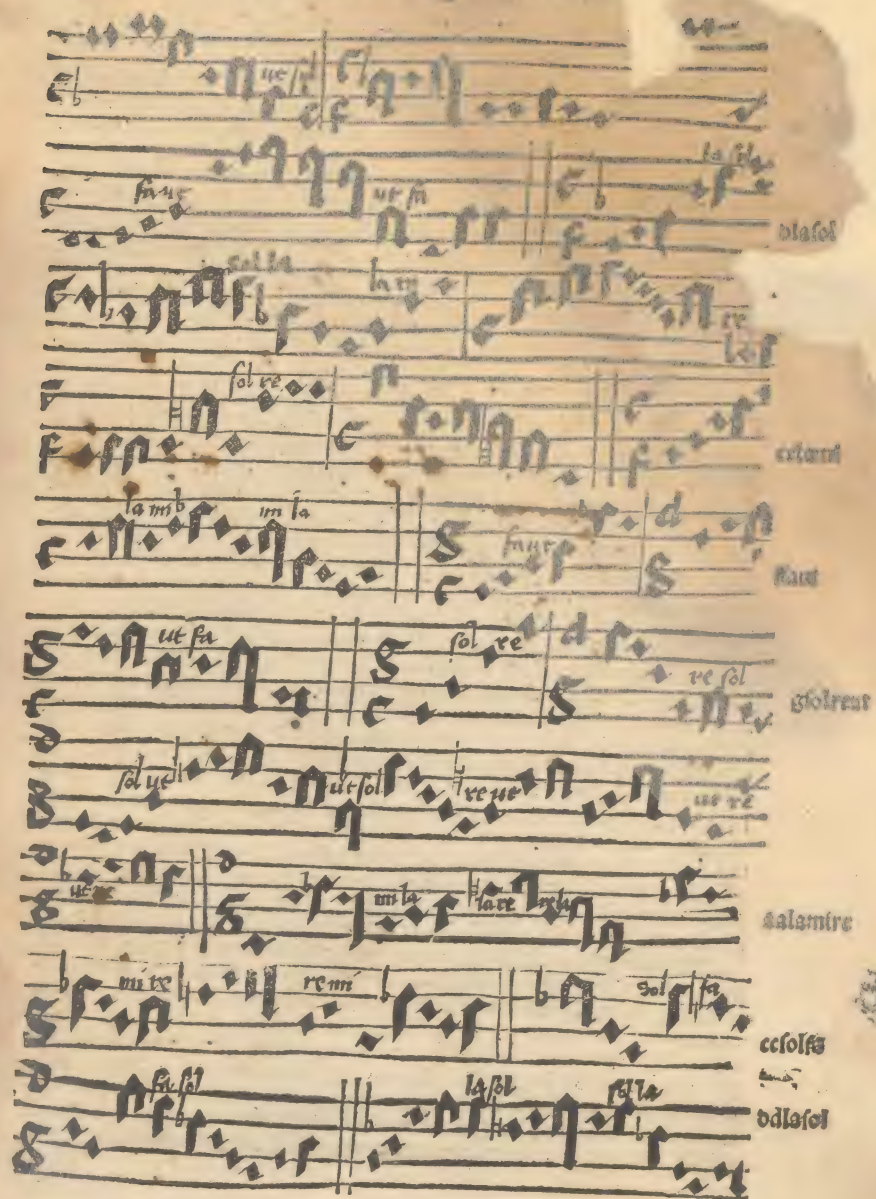 ut fa
fa ut ut fa la sol
dlasol
sol la la re re
sol re
la mi mi la fa ut
ffaut
ut fa sol re re sol
gsolreut
sol ut ut sol re ut ut re
ut re mi la la re re la
aalamire
mi re re mi sol fa
ccsolfa
fa sol la sol sol la
ddlasol